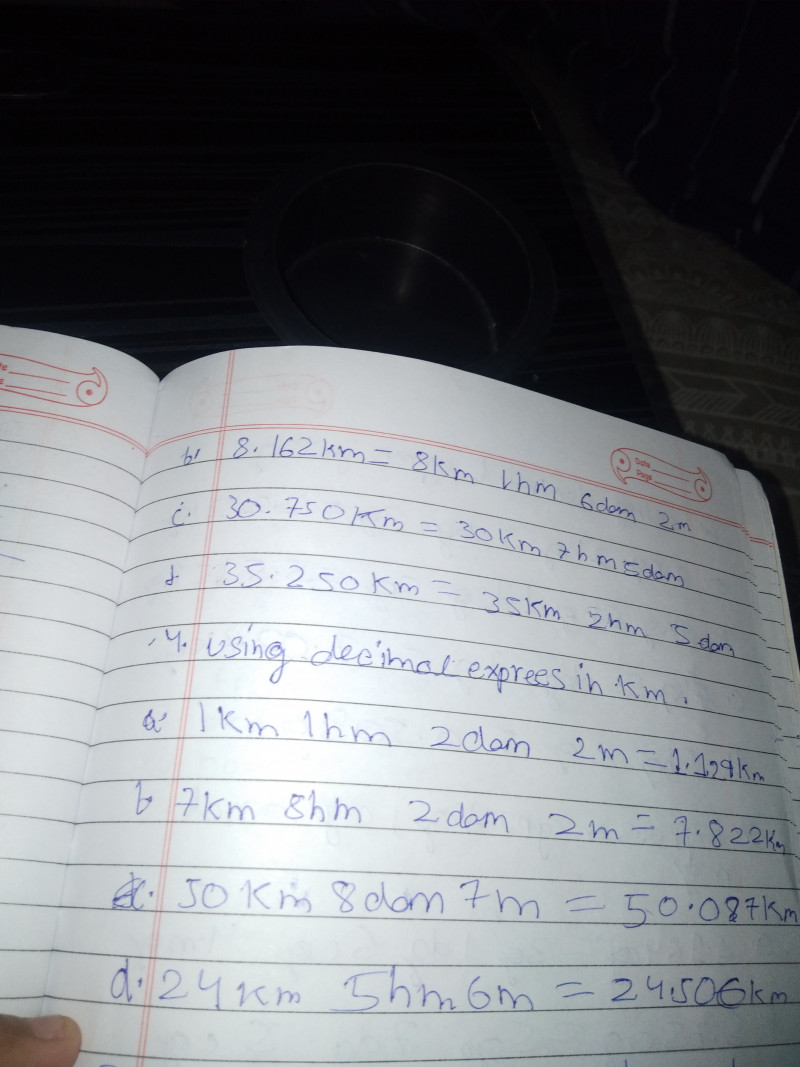 Date
Page
b. 8.162km = 8km 1hm 6dam 2m
c. 30.750Km = 30Km 7hm 5dam
d 35.250Km = 35Km 2hm 5dam
4. using decimal exprees in Km.
a. 1Km 1hm 2dam 2m =
b 7Km 8hm 2dam 2m = 7.822Km
50Km 8dam 7m = 50.087Km
d. 24Km 5hm 6m = 24.506km